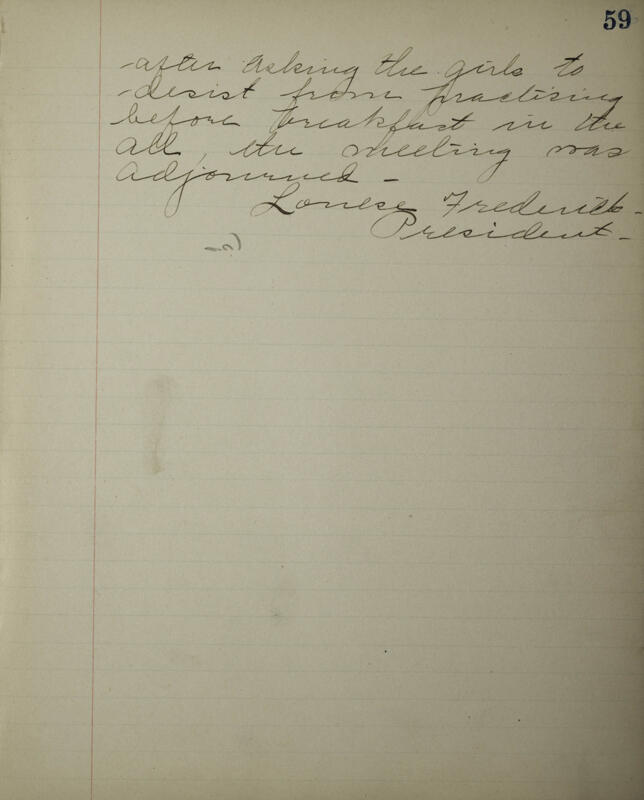 59
-after asking the girls to
-desist from practising
before breakfast in the
all, the meeting was
adjourned -
Louise Frederick -
President -